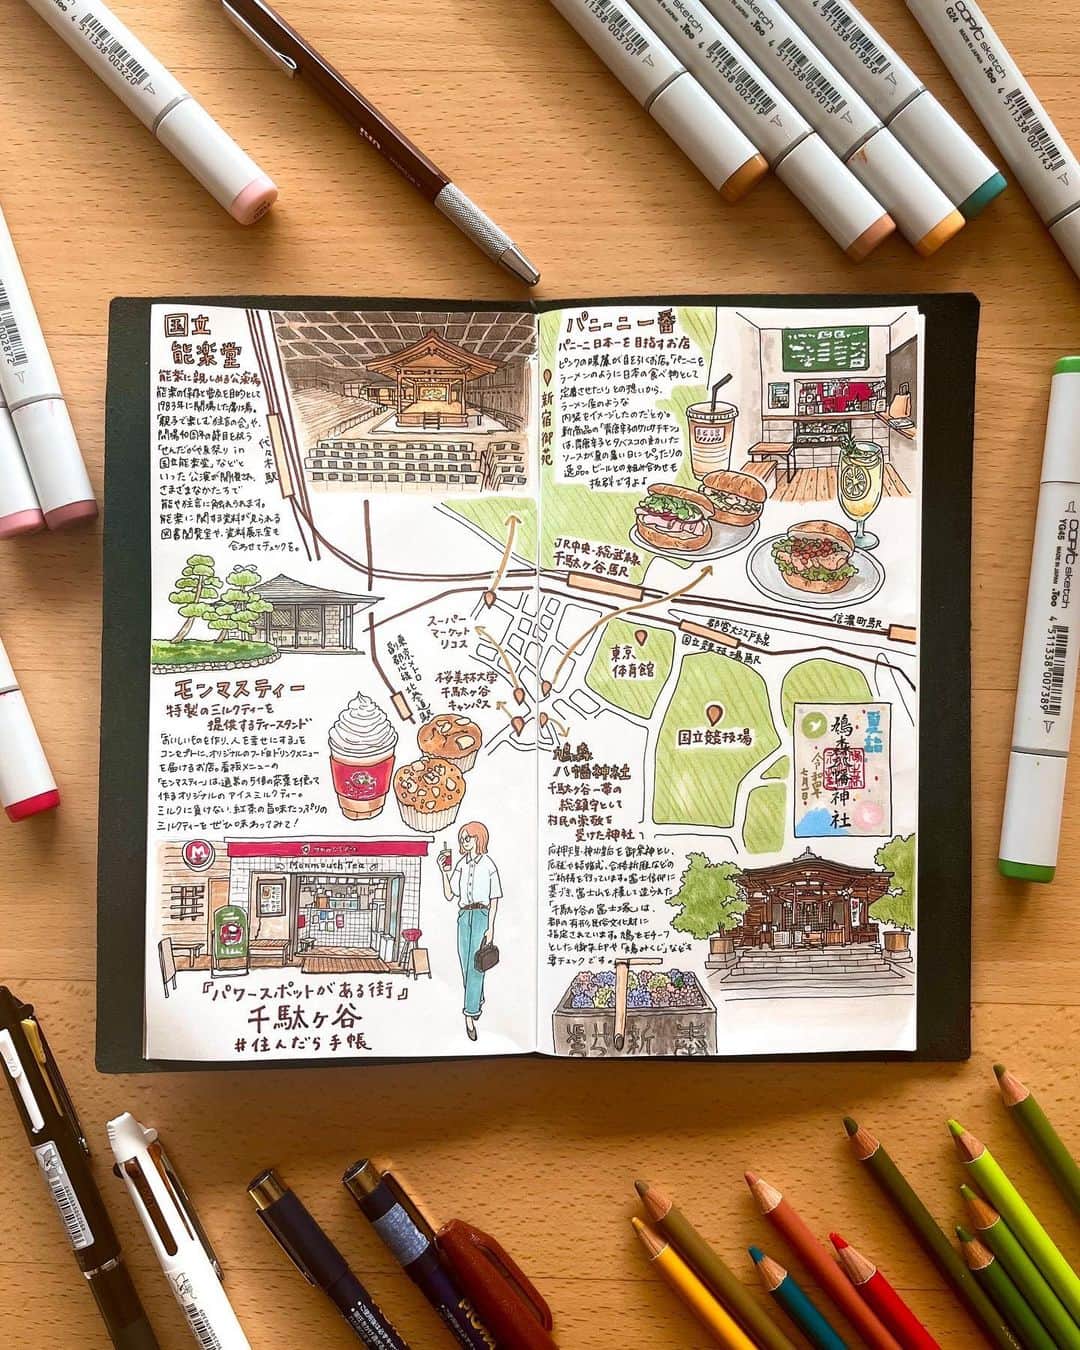 国立
能楽堂
能楽に親しめる公演場
能楽の保存と普及を目的として
1983年に開場した劇場。
「親子で楽しむ狂言の会」や、
開場40周年の節目を祝う
「せんだがや夏祭り in
国立能楽堂」などと
いった公演が開催され、
さまざまなかたちで
能や狂言に触れられます。
能楽に関する資料が見られる
図書閲覧室や、資料展示室も
合わせてチェックを。
代々木駅
モンマスティー
特製のミルクティーを
提供するティースタンド
「おいしいものを作り、人を幸せにする」を
コンセプトに、オリジナルのフード&ドリンクメニュー
を届けるお店。看板メニューの
「モンマスティー」は、通常の5倍の茶葉を使って
作るオリジナルのアイスミルクティー。
ミルクに負けない、紅茶の旨味たっぷりの
ミルクティーをぜひ味わってみて!
Monmouth Tea
『パワースポットがある街』
千駄ヶ谷
#住んだら手帳
東京メトロ
副都心線
北参道駅
スーパー
マーケット
リコス
桜美林大学
千駄ヶ谷
キャンパス
パニーニ一番
パニーニ日本一を目指すお店
ピンクの暖簾が目を引くお店。「パニーニを
ラーメンのように日本の食べ物として
定着させたい」との想いから、
ラーメン店のような
内装をイメージしたのだとか。
新商品の「青唐辛子のサルサチキン」
は、青唐辛子とタバスコの束いた
ソースが夏の暑い日にぴったりの
逸品。ビールとの組み合わせも
抜群ですよ♪
新宿御苑
JR中央・総武線
千駄ヶ谷駅
信濃町駅
都営大江戸線
国立競技場駅
東京
体育館
国立競技場
鳩森
八幡神社
千駄ヶ谷一帯の
総鎮守として
村民の崇敬を
受けた神社
応神天皇・神功皇后を御祭神とし、
厄祓や結婚式、合格祈願などの
ご祈祷を行っています。富士信仰に
基づき、富士山を模して造られた
「千駄ヶ谷の富士塚」は、
都の有形民俗文化財に
指定されています。鳩をモチーフ
とした御朱印や「鳩みくじ」なども
要チェックです。
夏詣
鳩森八幡神社
令和
七月一日
COPIC sketch
MADE IN JAPAN .Too
4 511338 003220
4 511338 002919
4 511338 049013
4 511338 019856
4 511338 007143
G24
YG45
4 511338 007389